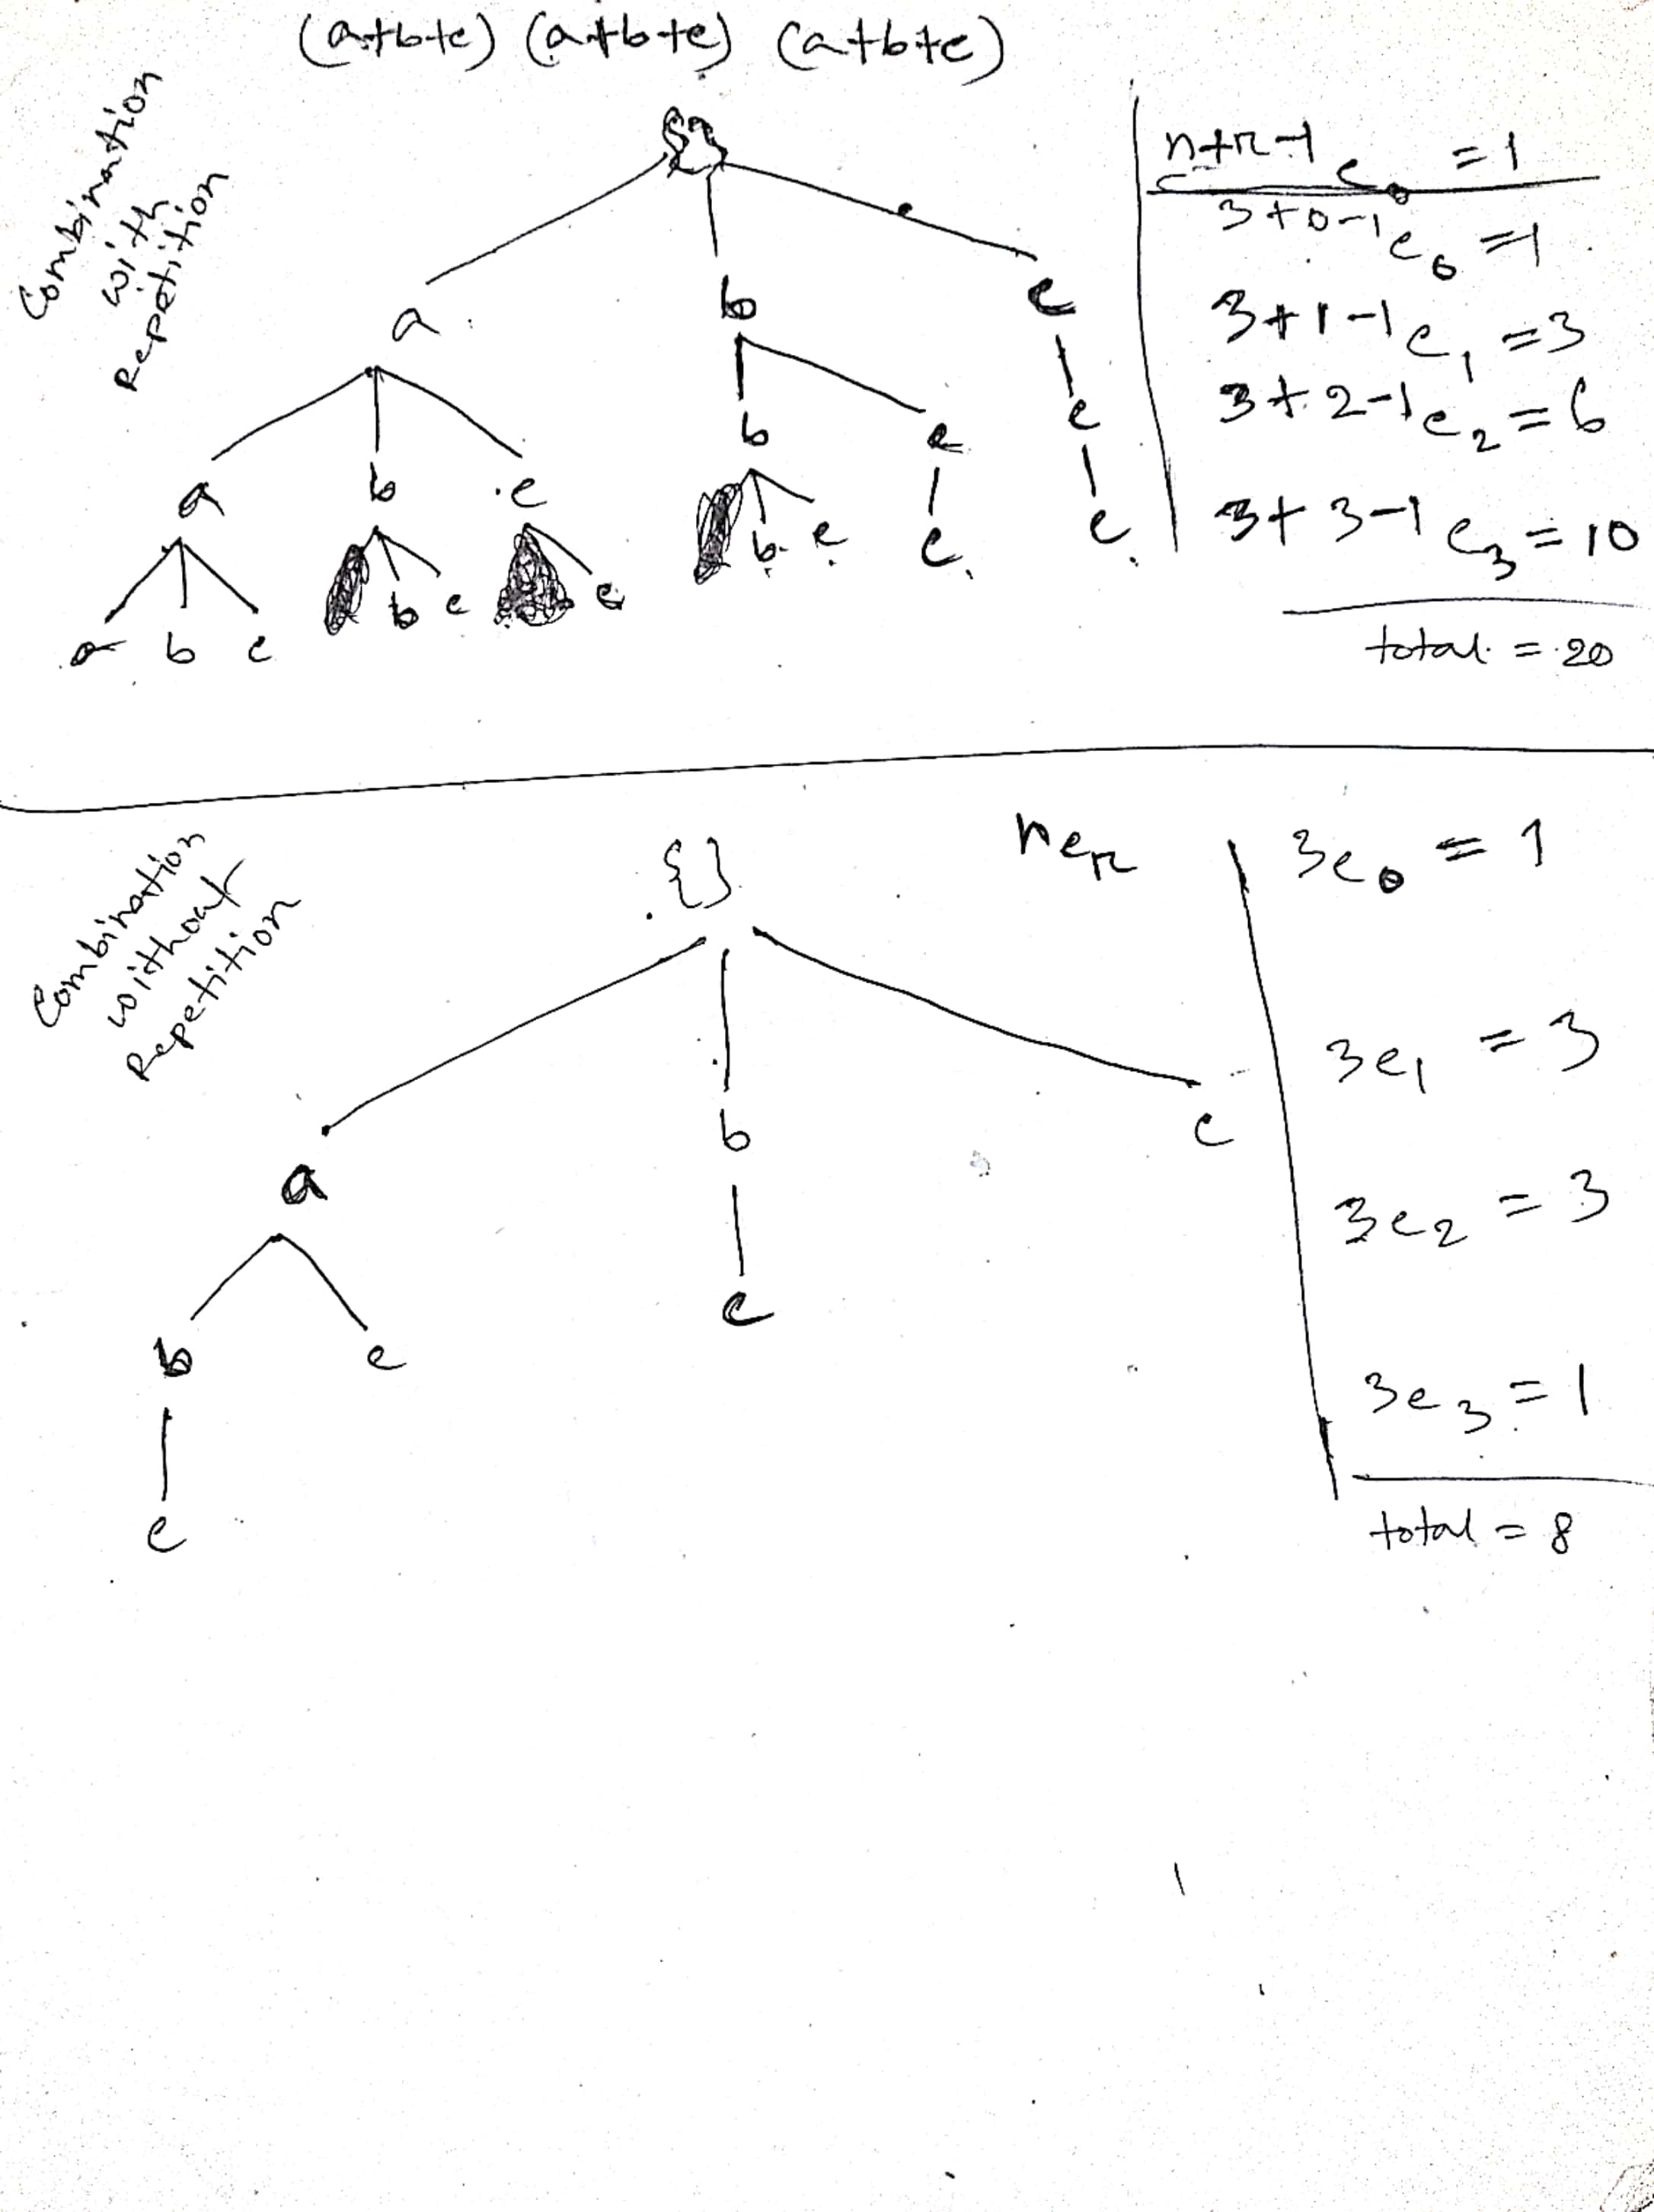 (a+b+c) (a+b+c) (a+b+c)
Combination
with
Repetition
{}
a b c
a b c b c c
a b c b c c b c c c
n+r-1 c = 1
3+0-1 c 0 = 1
3+1-1 c 1 = 3
3+2-1 c 2 = 6
3+3-1 c 3 = 10
total = 20
Combination
without
Repetition
{}
a b c
b c c
c
n c r
3 c 0 = 1
3 c 1 = 3
3 c 2 = 3
3 c 3 = 1
total = 8